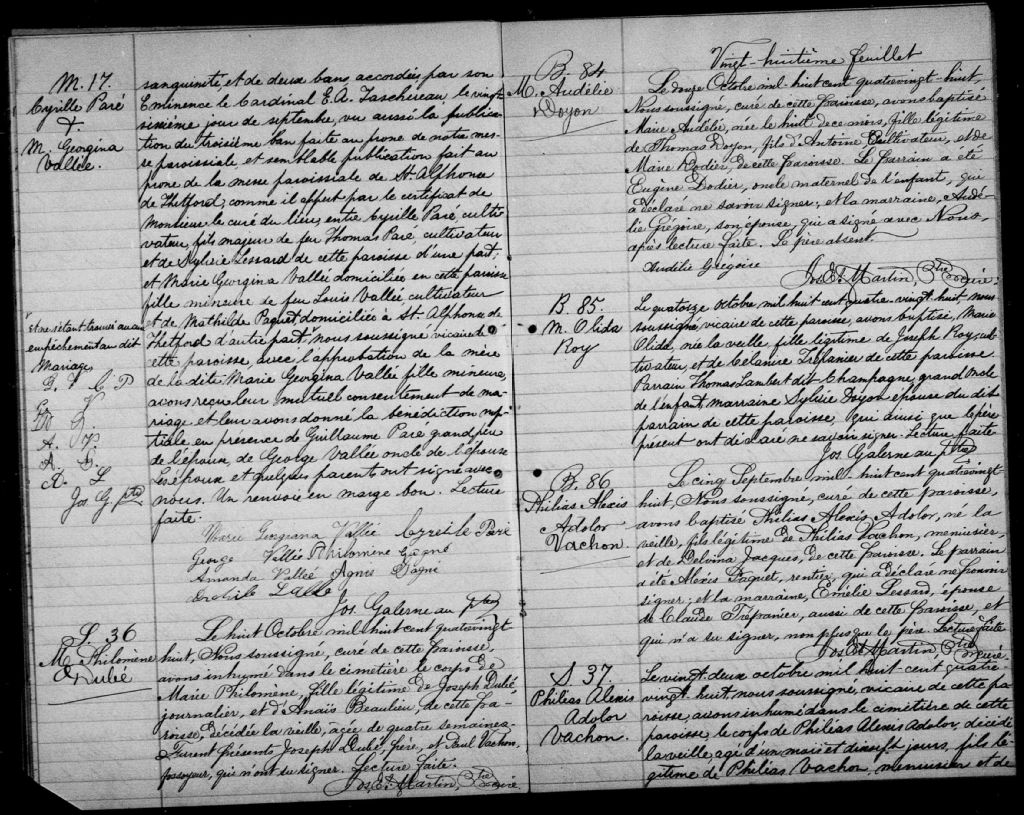 M. 17.
Cyrille Paré
&
M. Georgina
Vallée.
sanguinité, et de deux bans accordés par son
Eminence le Cardinal E. A. Taschereau le vingt
sixième jour de septembre, vu aussi la publica-
tion du troisième ban faite au prone de notre mes-
se paroissiale et semblable publication fait au
prone de la messe paroissiale de St Alphonse
de Thetford; comme il appert par le certificat de
Monsieur le curé du lieu, entre Cyrille Paré, culti-
vateur, fils majeur de feu Thomas Paré, cultivateur
et de Sylvie Lessard de cette paroisse d'une part;
et Marie Georgina Vallée domiciliée en cette paroisse
fille mineure de feu Louis Vallée, cultivateur
et de Mathilde Paquet domiciliée à St. Alphonse de
Thetford d'autre part, nous soussigné vicaire de
cette paroisse, avec l'approbation de la mère
de la dite Marie Georgina Vallée fille mineure,
avons reçu leur mutuel consentement de ma-
riage et leur avons donné la bénédiction nup-
tiale en presence de Guillaume Paré grand père
de l'époux, de George Vallée oncle de l'épouse
Les époux et quelques parent ont signé avec
nous. Un renvoie en marge bon. Lecture
faite.
et ne s'étant trouvé aucun
empêchement au dit
Mariage
G. V. C. P
A. V.
A. G.
Jos G ptre
Marie Georgiana Vallée Cyreille Paré
George Vallée Philomene Gagné
Amanda Vallée Agnes Gagné
Jos. Galerneau ptre
S. 36
M. Philomène
Dubé
Le huit Octobre mil huit cent quatrevingt-
huit, Nous soussigné, curé de cette paroisse,
avons inhumé dans le cimetière le corps de
Marie Philomène, fille légitime de Joseph Dubé,
journalier, et d'Anaïs Beaulieu, de cette pa-
roisse, décédée la veille, agée de quatre semaines.
Furent présents Joseph Dubé, frère, et Paul Vachon,
fossoyeur, qui n'ont su signer. Lecture faite.
Jos. Et. Martin, Ptre Curé.
Vingt-huitième feuillet
B. 84
M. Audélie
Doyon
Le onze Octobre mil huit cent quatrevingt-huit,
Nous soussigné, curé de cette paroisse, avons baptisé
Marie Audélie, née le huit de ce mois, fille légitime
de Thomas Doyon, fils d'Antoine Cultivateur, et de
Marie Rodier, de cette paroisse. Le parrain a été
Eugène Dodier, oncle maternel de l'enfant, qui
a déclaré ne savoir signer, et la marraine, Audé-
lie Grégoire, son épouse, qui a signé avec Nous,
après lecture faite. Le père absent.
Audélie Grégoire
Jos. Et. Martin, Ptre Curé.
B. 85.
M. Olida
Roy
Le quatorze octobre mil huit cent quatre-vingt huit nous
soussigné, vicaire de cette paroisse, avons baptisé, Marie
Olida, née la veille, fille legitime de Joseph Roy, cul-
tivateur, et de Célanire Trépanier de cette paroisse
Parrain Thomas Lambert dit Champagne, grand oncle
de l'enfant, marraine Sylvie Doyon épouse du dit
parrain de cette paroisse, qui ainsi que le père
présent ont déclaré ne savoir signer. Lecture faite
Jos Galerneau ptre
B. 86
Philias Alexis
Adolor
Vachon.
Le cinq Septembre mil-huit cent quatrevingt
huit, Nous soussigné, curé de cette paroisse,
avons baptisé Philias Alexis Adolor, né la
veille, fils légitime de Philias Vachon, menuisier,
et de Delvina Jacques, de cette paroisse. Le parrain
a été Alexis Paquet, rentier, qui a déclaré ne pouvoir
signer; et la marraine, Emélie Lessard, épouse
de Claude Trépanier, aussi de cette paroisse, et
qui n'a su signer, non plus que le père. Lecture faite
Jos. Et. Martin, Ptre Curé.
S 37.
Philias Alexis
Adolor
Vachon.
Le vingt deux octobre mil huit-cent quatre-
vingt huit, nous soussigné, vicaire de cette pa-
roisse, avons inhumé dans le cimetière de cette
paroisse, le corps de Philias Alexis Adolor, décédé
la veille, agé d'un mois et dixsept jours, fils lé-
gitime de Philias Vachon, menuisier et de